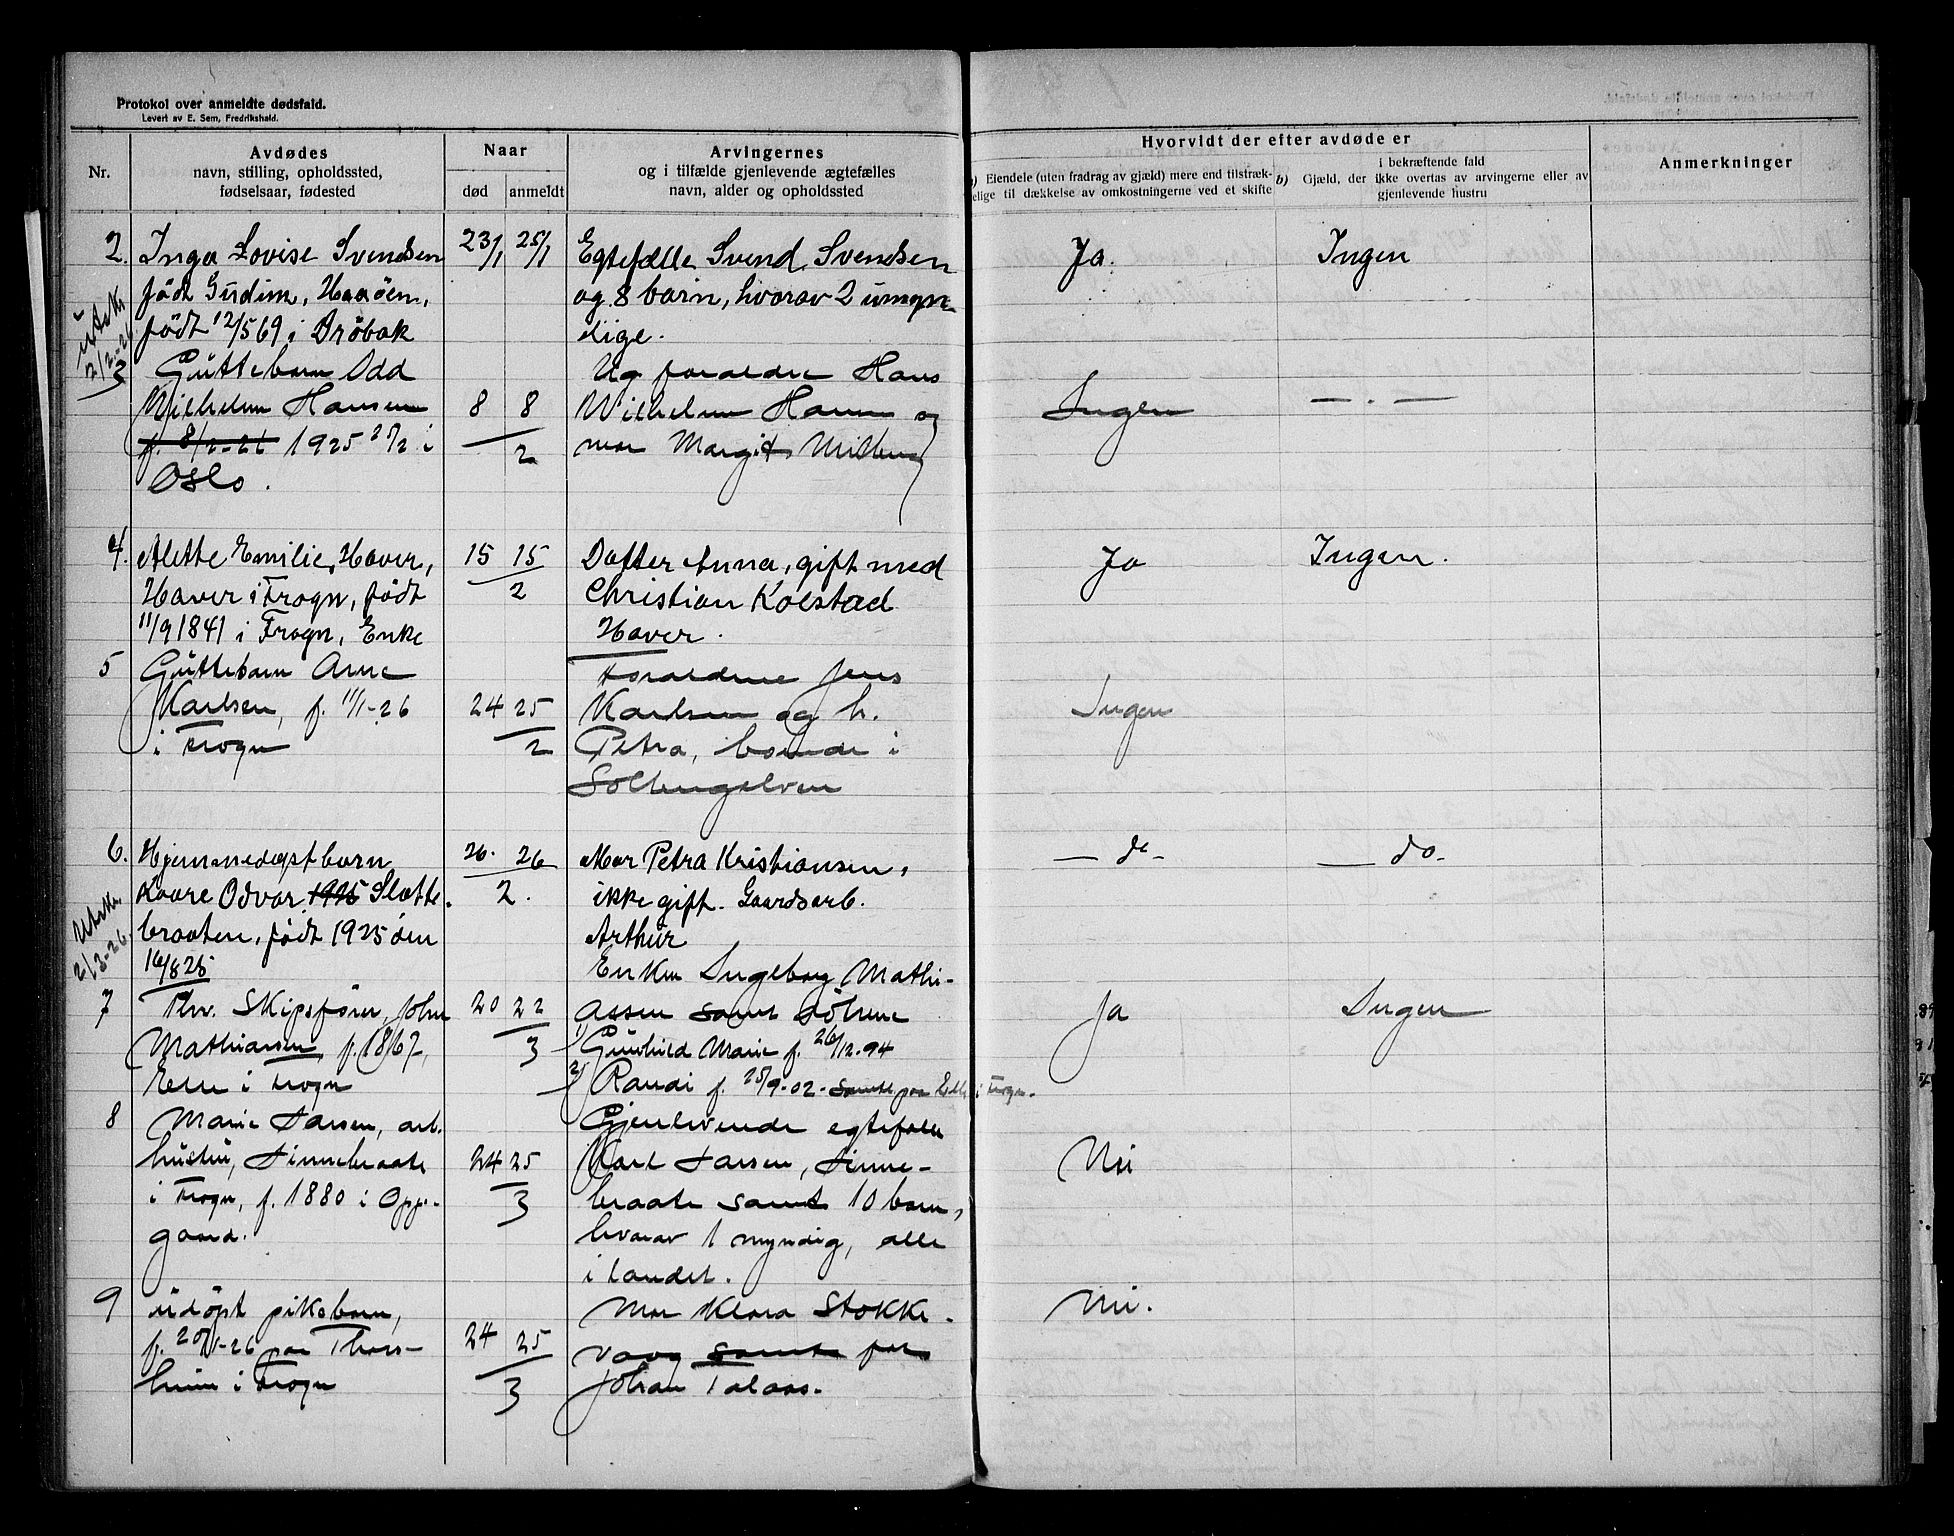 Protokol over anmeldte dødsfald.
Levert av E. Sem, Fredrikshald.
Nr.
Avdødes
navn, stilling, opholdssted,
fødselsaar, fødested
Naar
død anmeldt
Arvingernes
og i tilfælde gjenlevende ægtefælles
navn, alder og opholdssted
Hvorvidt der efter avdøde er
Eiendele (uten fradrag av gjæld) mere end tilstræk-
elige til dækkelse av omkostningerne ved et skifte
b) Gjæld, der i bekræftende fald
ikke overtas av arvingerne eller av
gjenlevende hustru
Anmerkninger
2. Inga Lovise Svendsen
født Gudim, Haaøen,
født 12/5 69 i Drøbak
23/1 25/1
Egtefælle Svend Svendsen
og 8 barn, hvorav 2 umyn
dige.
Ja.
Ingen
Utskr.
2/2-26.
3 Guttebarn Odd
Wilhelm Hansen
f. 8/2-26 1925 27/2 i
Oslo.
8 8
2
Ug foraldre Hans
Wilhelm Hansen og
mor Margit
Ingen
— . —
4. Alette Emilie Haver,
Haver i Frogn, født
11/9 1841 i Frogn, Enke
15 15
2
Datter Anna, gift med
Christian Kolstad
Haver.
Ja
Ingen.
5 Guttebarn Arne
Karlsen, f. 11/1-26
i Frogn
24 25
2
Foraldrene Jens
Karlsen og h.
Petra, boende i
Ingen
6. Hjemmedøpt barn
Kaare Odvar 1925 Slætte-
braaten, født 1925 den
16/8 25
26. 26
2.
Mor Petra Kristiansen,
ikke gift. Gaardsarb.
Arthur
— do -
— do -
Utskr.
2/3-26.
7 Fhv. Skipsfører, John
Mathiassen, f. 1867,
Elle i Frogn
20 22
3
Enken Ingeborg Mathi-
assen samt døtrene
1) Gunhild Marie f. 26/12-94
2) Randi f. 25/9-02- samtl. paa Elle i Frogn.
Ja
Ingen
8 Marie Larsen, arb.
hustru, Linnebraate
i Frogn, f. 1880 i Opp-
gaard.
24 25
3
Gjenlevende egtefælle
Karl Larsen, Linne-
braate samt 10 barn,
hvorav 1 myndig, alle
i landet.
Nei
9 udøpt pikebarn,
f. 20/1-26 paa Thors-
heim i Frogn
24 25
3
Mor Klara Stokke-
vaag samt far
Johan Talaas.
Nei.